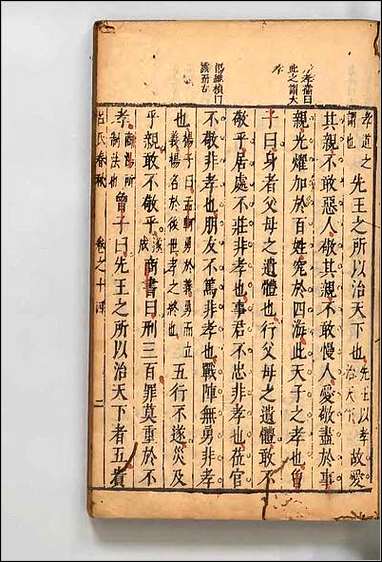 此之謂大
孝
孝道之謂也先王之所以治天下也先王以孝治天下故愛
其親不敢惡人敬其親不敢慢人愛敬盡於事
親光燿加於百姓究於四海此天子之孝也曾
子曰身者父母之遺體也行父母之遺體敢不
敬乎居處不莊非孝也事君不忠非孝也莅官
不敬非孝也朋友不篤非孝也戰陣無勇非孝
也揚子曰孟軻勇於義勇而立義揚名於後世孝之終也五行不遂災及
乎親敢不敬乎遂成商書曰刑三百罪莫重於不
孝商湯所制法也曾子曰先王之所以治天下者五貴
呂氏春秋 卷之十四 二